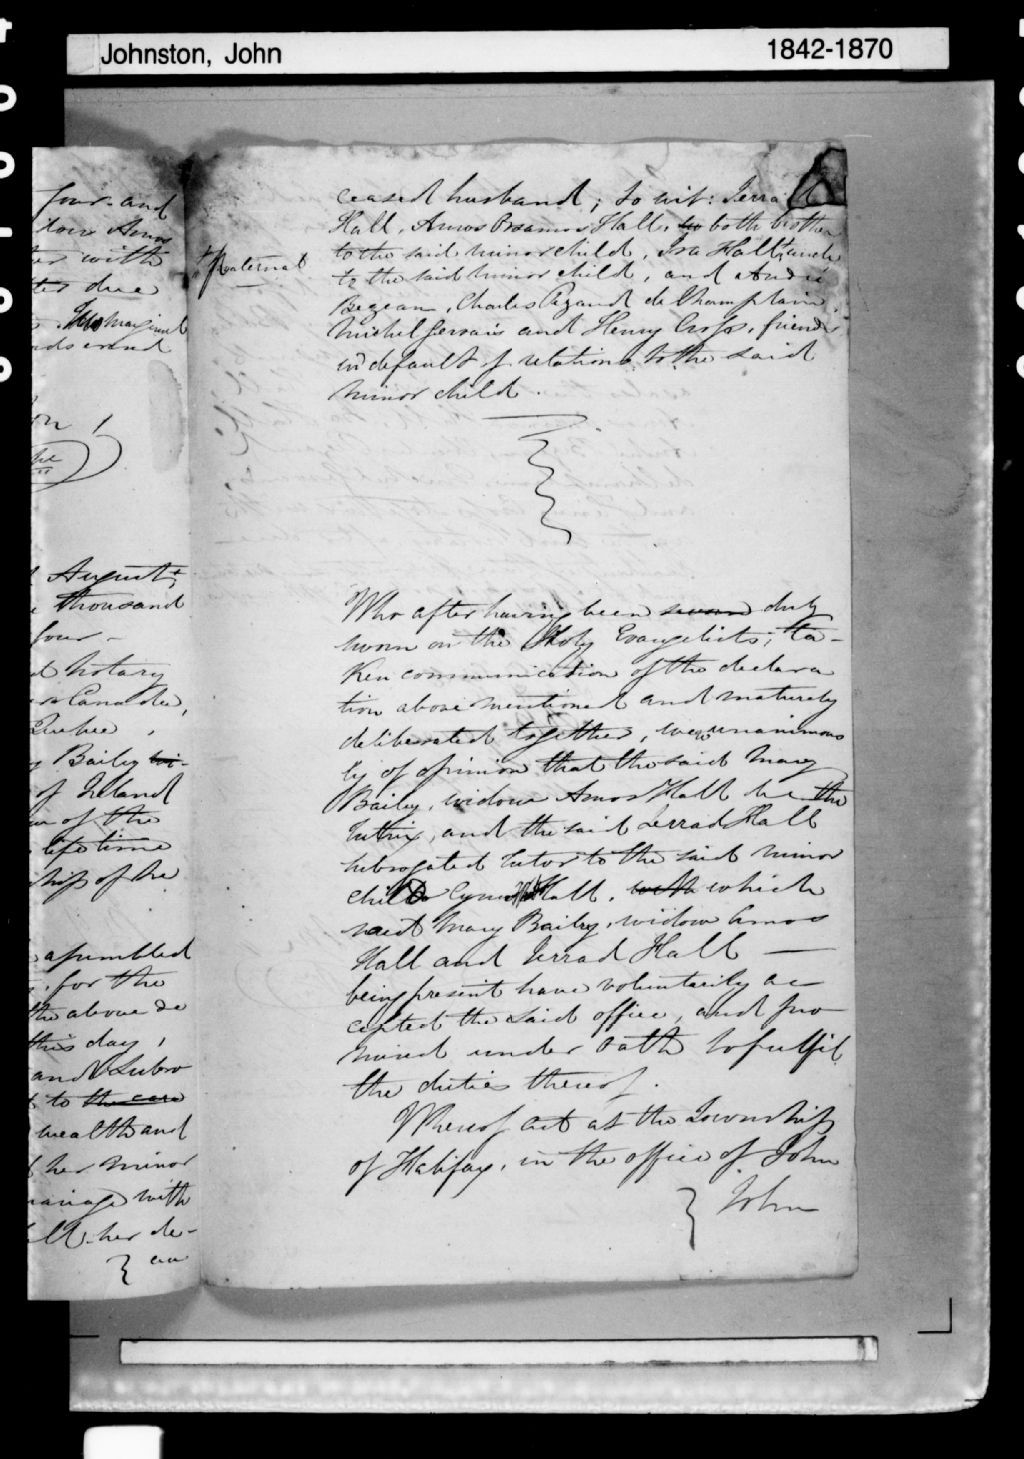 Johnston, John 1842-1870
four and
Amos
with
due
marginal
August,
thousand
four -
notary
Canada,
Bailey
of Ireland
of the
life time
ship of the
assembled
for the
the above de
this day,
and Subro
to the care
wealth and
her minor
with
her de-
cea
ceased husband; to wit: Jerrad
Hall, Amos Hall, to both brother
+ Paternal
to the said minor child, Ira Hall + uncle
to the said minor child, and
Charles Pezard de Champlain,
Michel Gervais and Henry Cross, friends
in default of relations to the said
minor child.
Who after having been sworn duly
sworn on the Holy Evangelists; ta-
ken communication of the declara
tion above mentioned and maturely
deliberated together, were unanimous
ly of opinion that the said Mary
Bailey, widow Amos Hall be the
tutrix, and the said Jerrad Hall
subrogated tutor to the said minor
child Hall. with which
said Mary Bailey, widow Amos
Hall and Jerrad Hall —
being present have voluntarily ac-
cepted the said office, and pro
mised under oath to fulfil
the duties thereof.
Whereof act at the Township
of Halifax, in the office of John
John